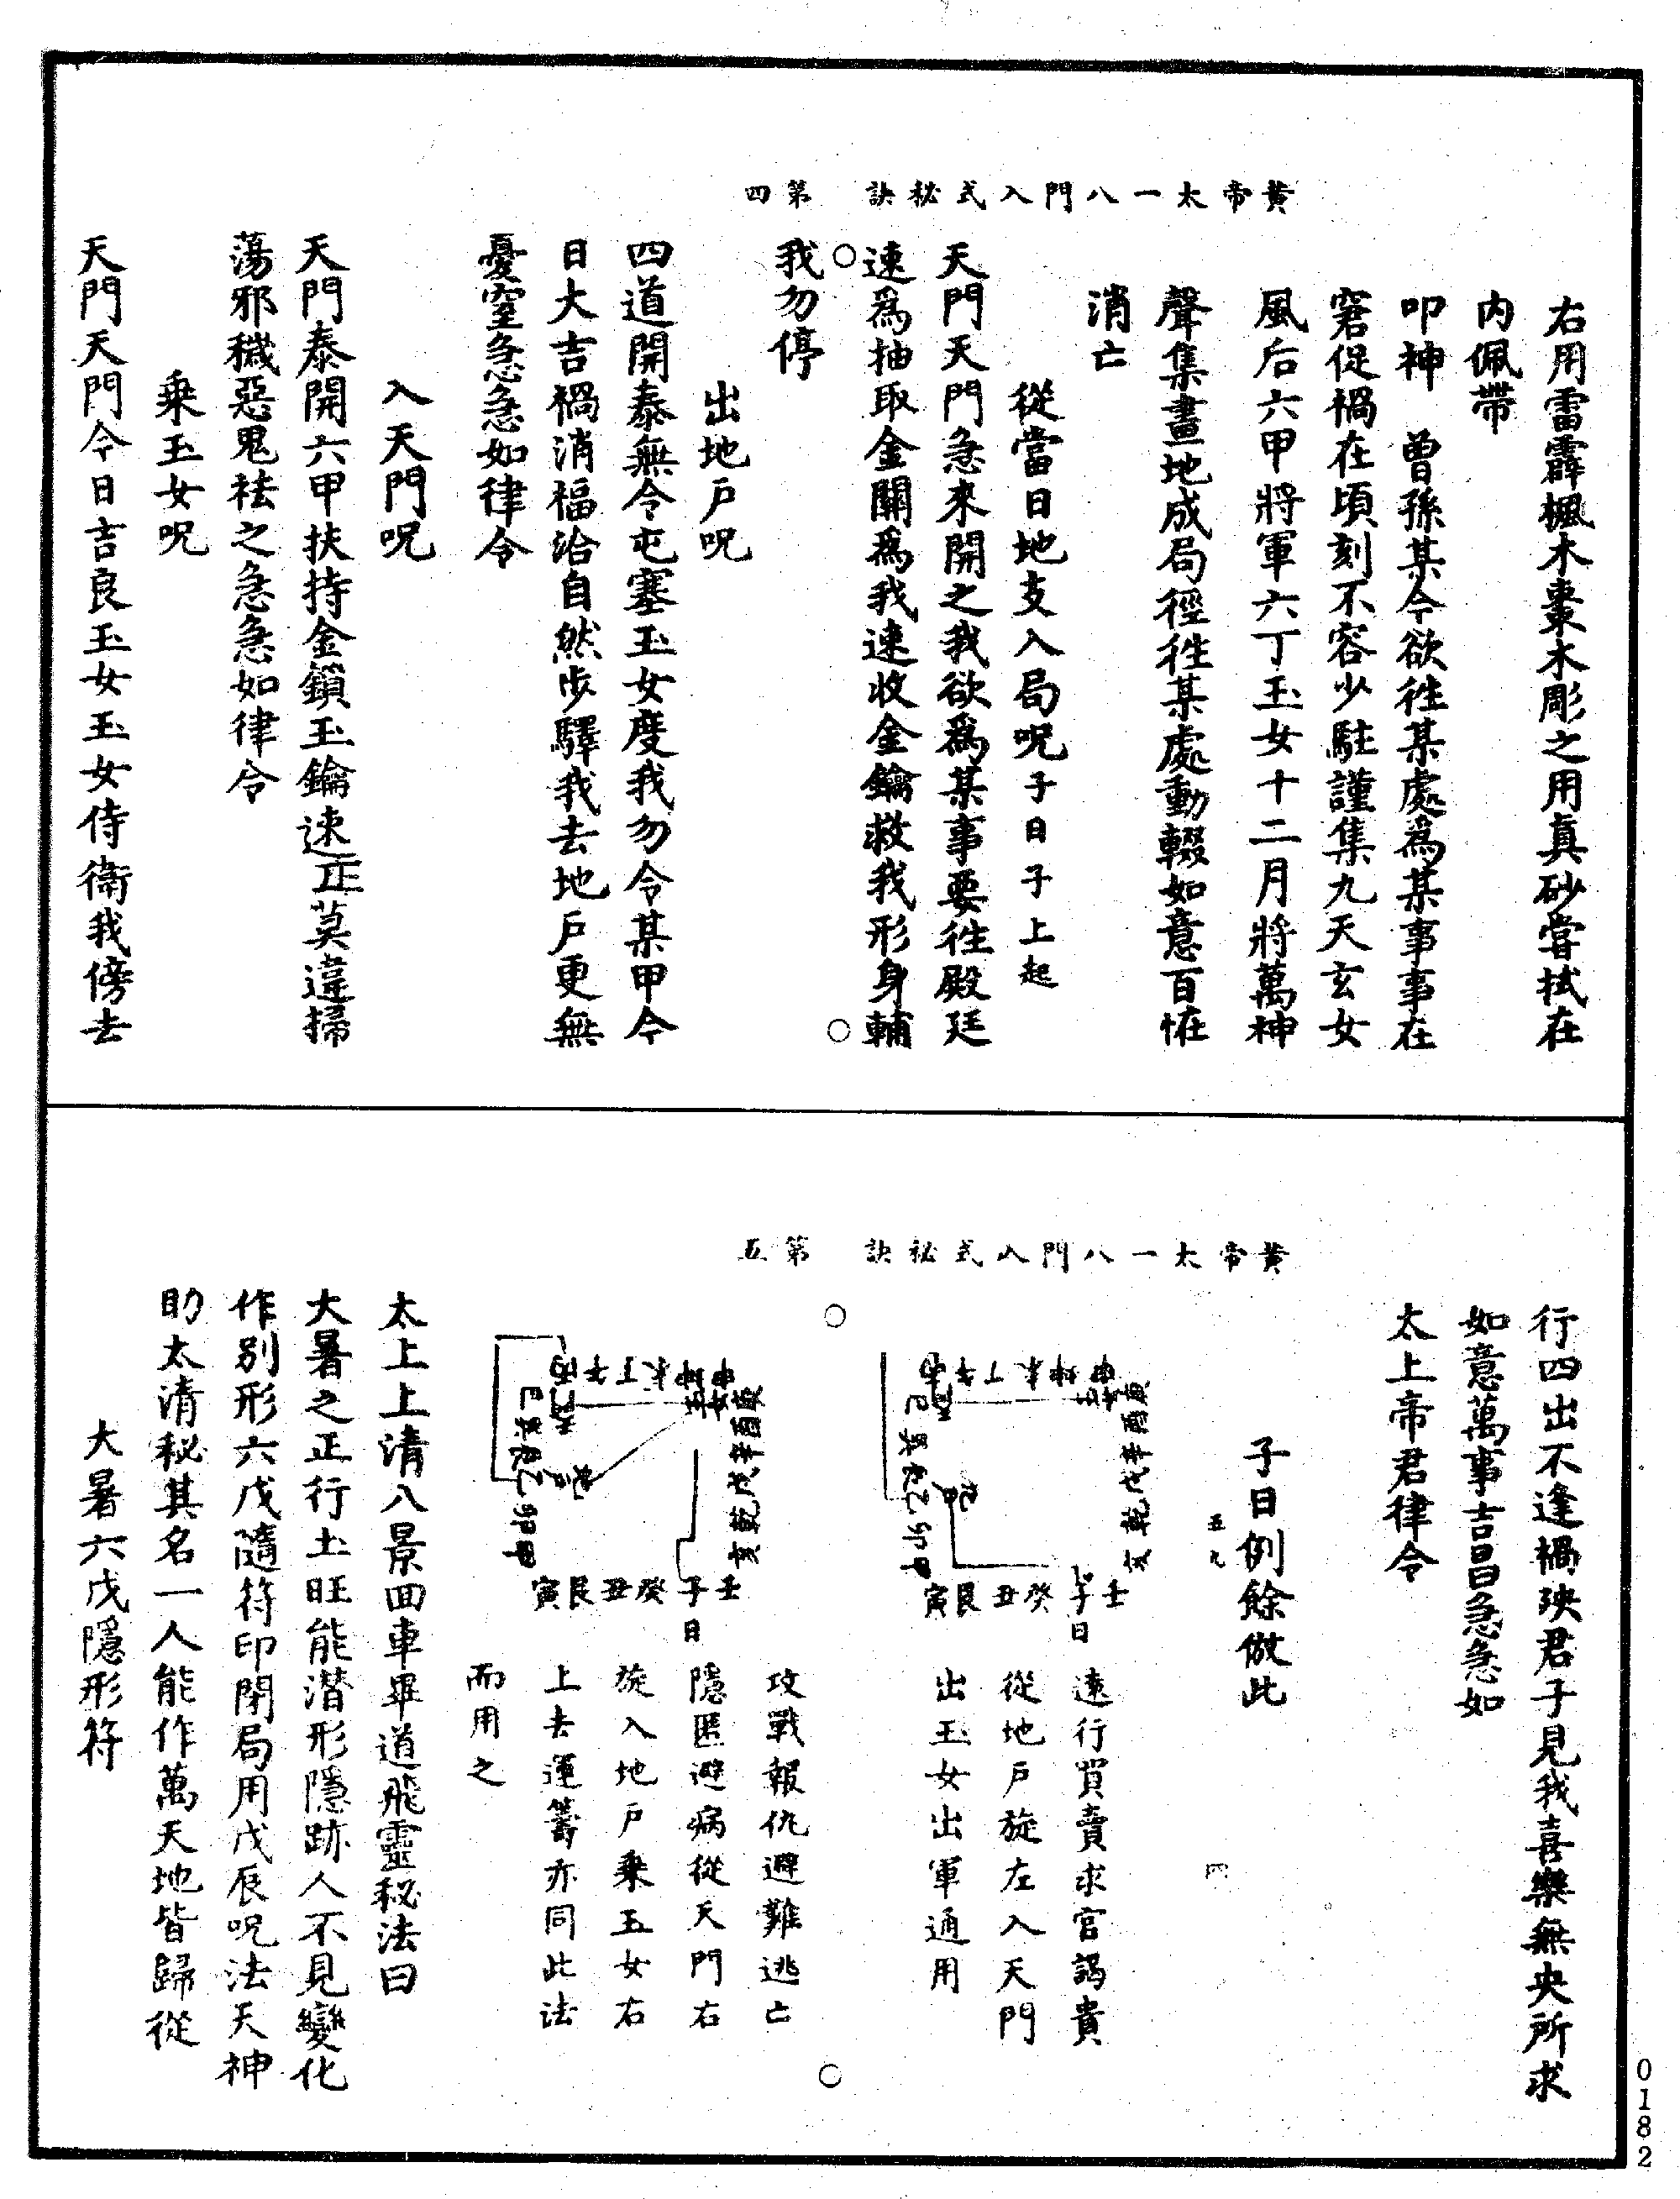 黃帝太一八門入式祕訣 第四
右用雷霹楓木棗木彫之用真砂當拭在
內佩帶
叩神 曾孫某今欲徃某處爲某事事在
窘促禍在頃刻不容少駐謹集九天玄女
風后六甲將軍六丁玉女十二月將萬神
聲集畫地成局徑徃某處動輟如意百恠
消亡
從當日地支入局呪子日子上起
天門天門急來開之我欲爲某事要徃殿廷
速爲抽取金關爲我速收金鑰救我形身輔
我勿停
出地戶呪
四道開泰無令屯塞玉女度我勿令某甲今
日大吉禍消福洽自然步驛我去地戶更無
憂窒急急如律令
入天門呪
天門泰開六甲扶持金鎖玉鑰速正莫違掃
蕩邪穢惡鬼祛之急急如律令
乘玉女呪
天門天門今日吉良玉女玉女侍衛我傍去
黃帝太一八門入式祕訣 第五
行四出不逢禍殃君子見我喜樂無央所求
如意萬事吉昌急急如
太上帝君律令
子日例餘倣此
五九 四
丙午丁未坤申
庚酉辛戌乾亥
巳巽辰乙卯甲
寅艮丑癸子壬
日
遠行買賣求官謁貴
從地戶旋左入天門
出玉女出軍通用
丙午丁未坤申
庚酉辛戌乾亥
巳巽辰乙卯甲
寅艮丑癸子壬
日
攻戰報仇避難逃亡
隱匿避病從天門右
旋入地戶乘玉女右
上去運籌亦同此法
而用之
太上上清八景回車畢道飛靈祕法曰
大暑之正行土旺能潛形隱跡人不見變化
作別形六戊隨符印閉局用戊辰呪法天神
助太清祕其名一人能作萬天地皆歸從
大暑六戊隱形符
0182